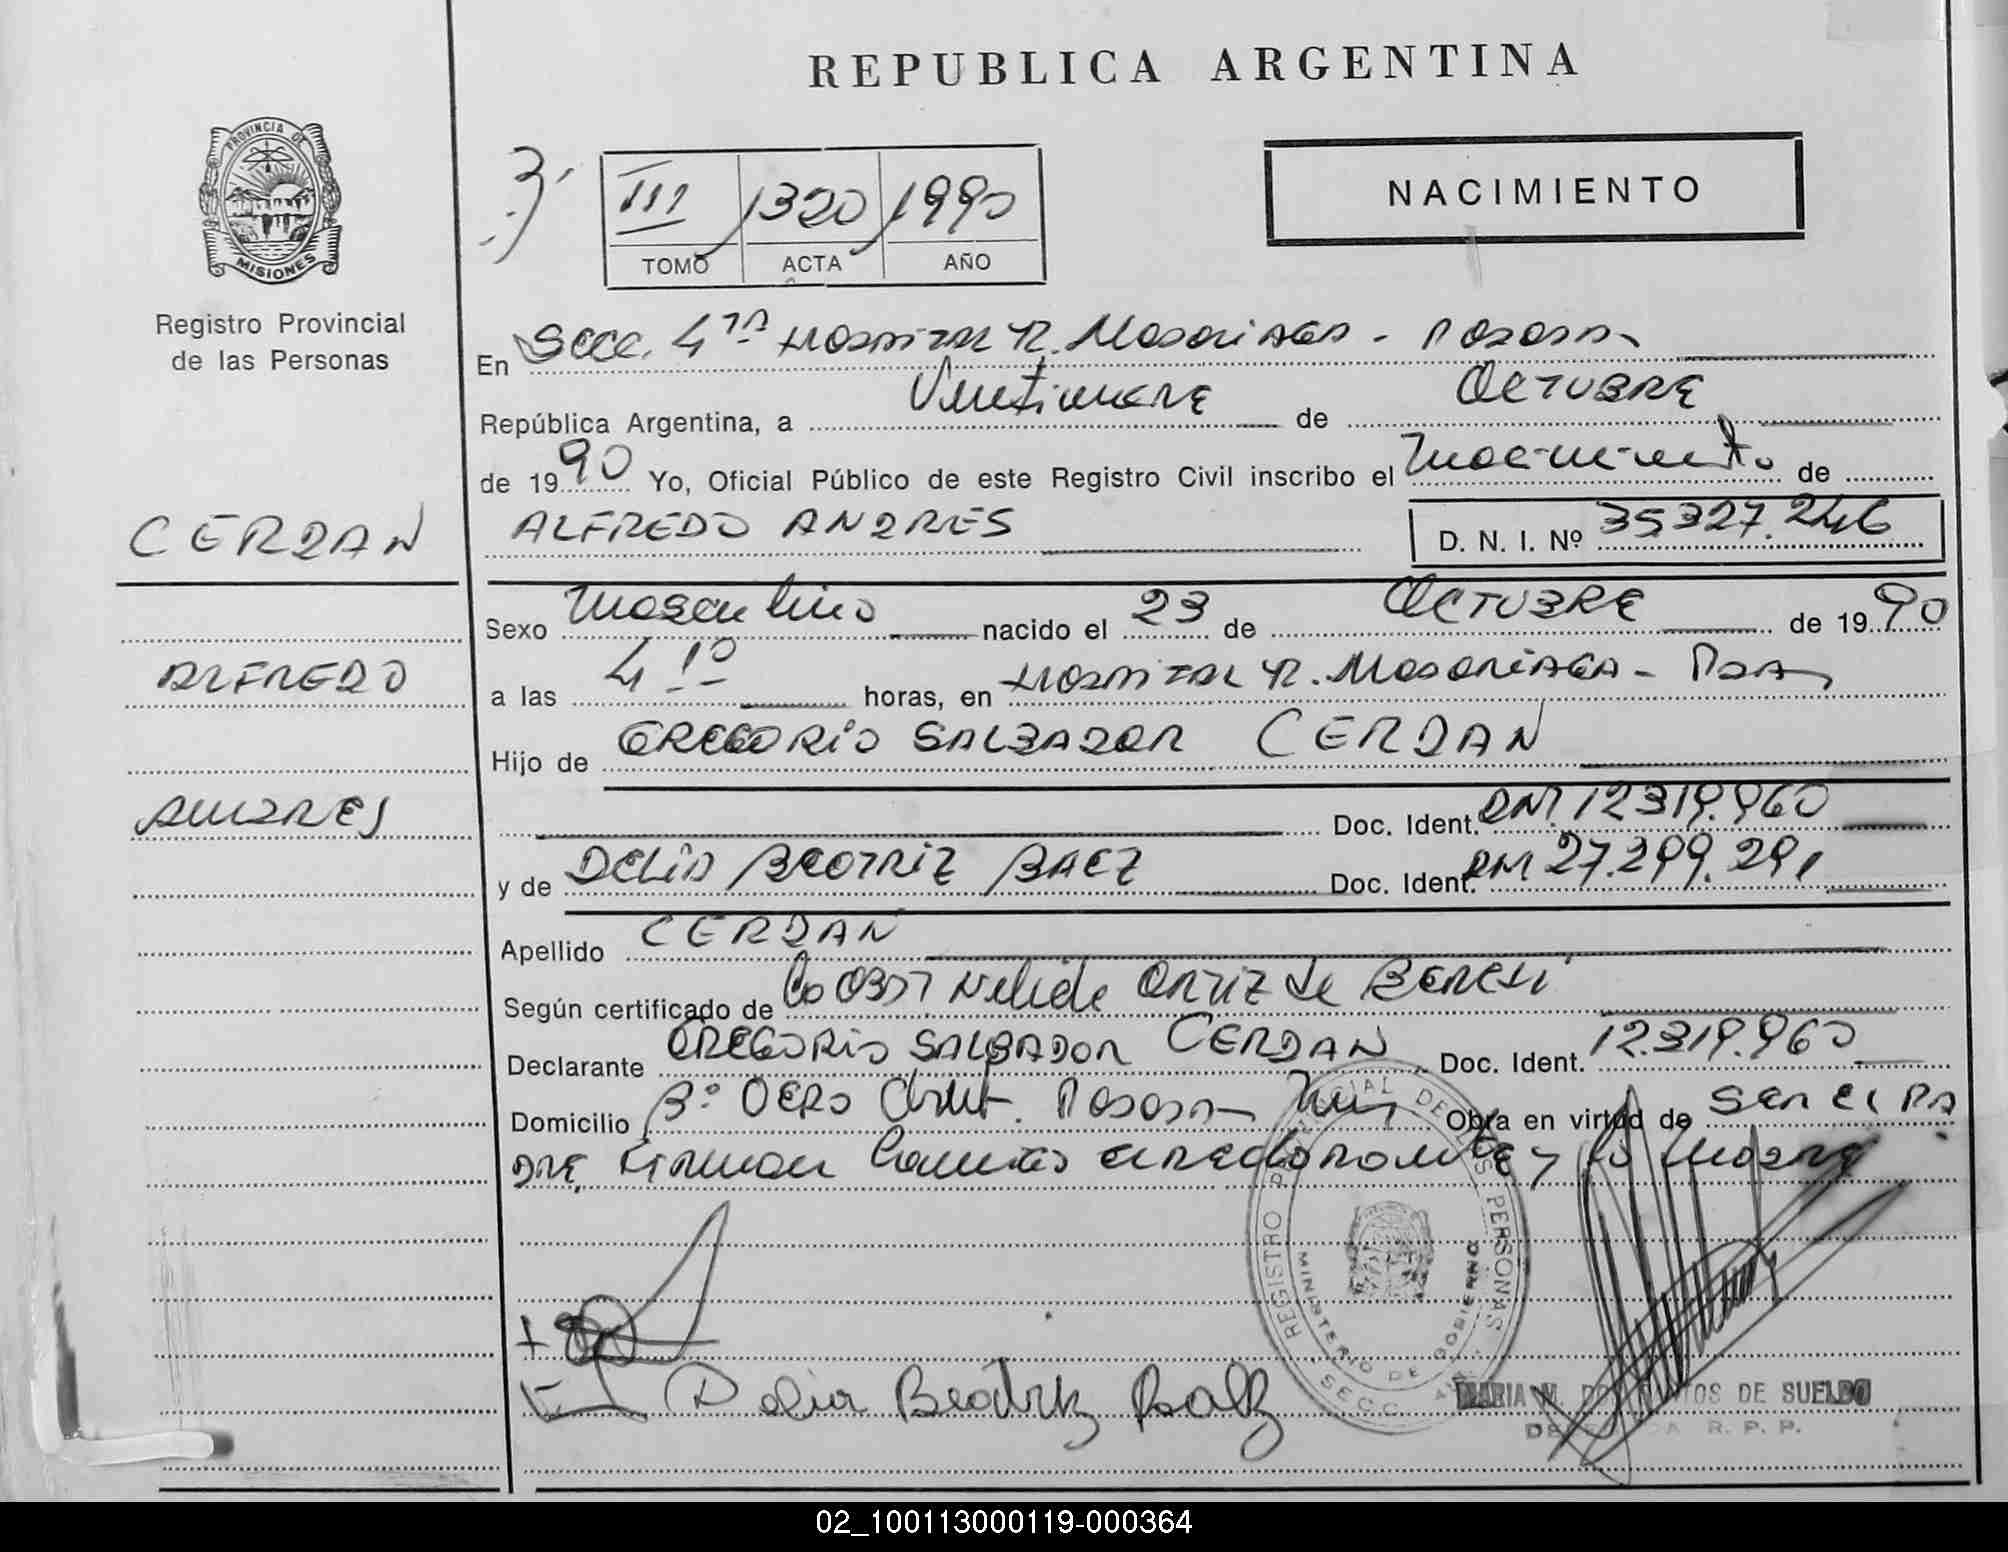 REPUBLICA ARGENTINA
PROVINCIA DE
MISIONES
Registro Provincial
de las Personas
NACIMIENTO
III 1320 1990
TOMO ACTA AÑO
En Secc. 4ta Hospital R. Madariaga - Posadas
República Argentina, a Veintinueve de Octubre
de 1990 Yo, Oficial Público de este Registro Civil inscribo el Nacimiento de
CERDAN
ALFREDO ANDRES D. N. I. Nº 35.327.246
Sexo Masculino nacido el 23 de Octubre de 1990
ALFREDO
a las 4 10 horas, en Hospital R. Madariaga - Pdas
Hijo de GREGORIO SALBADOR CERDAN
ANDRES
Doc. Ident. DNI. 12.319.960
y de DELIA BEATRIZ BAEZ Doc. Ident. DNI 27.299.291
Apellido CERDAN
Según certificado de Nelida Ortiz de
Declarante GREGORIO SALBADOR CERDAN Doc. Ident. 12.319.960
Domicilio Posadas Obra en virtud de ser el pa
dre, Firman ambos el declarante y la madre
REGISTRO PROVINCIAL DE LAS PERSONAS
MINISTERIO DE GOBIERNO
SECC. 4ta
Delia Beatriz Baez
MARIA M. DOS SANTOS DE SUELDO
DELEGADA R. P. P.
02_100113000119-000364